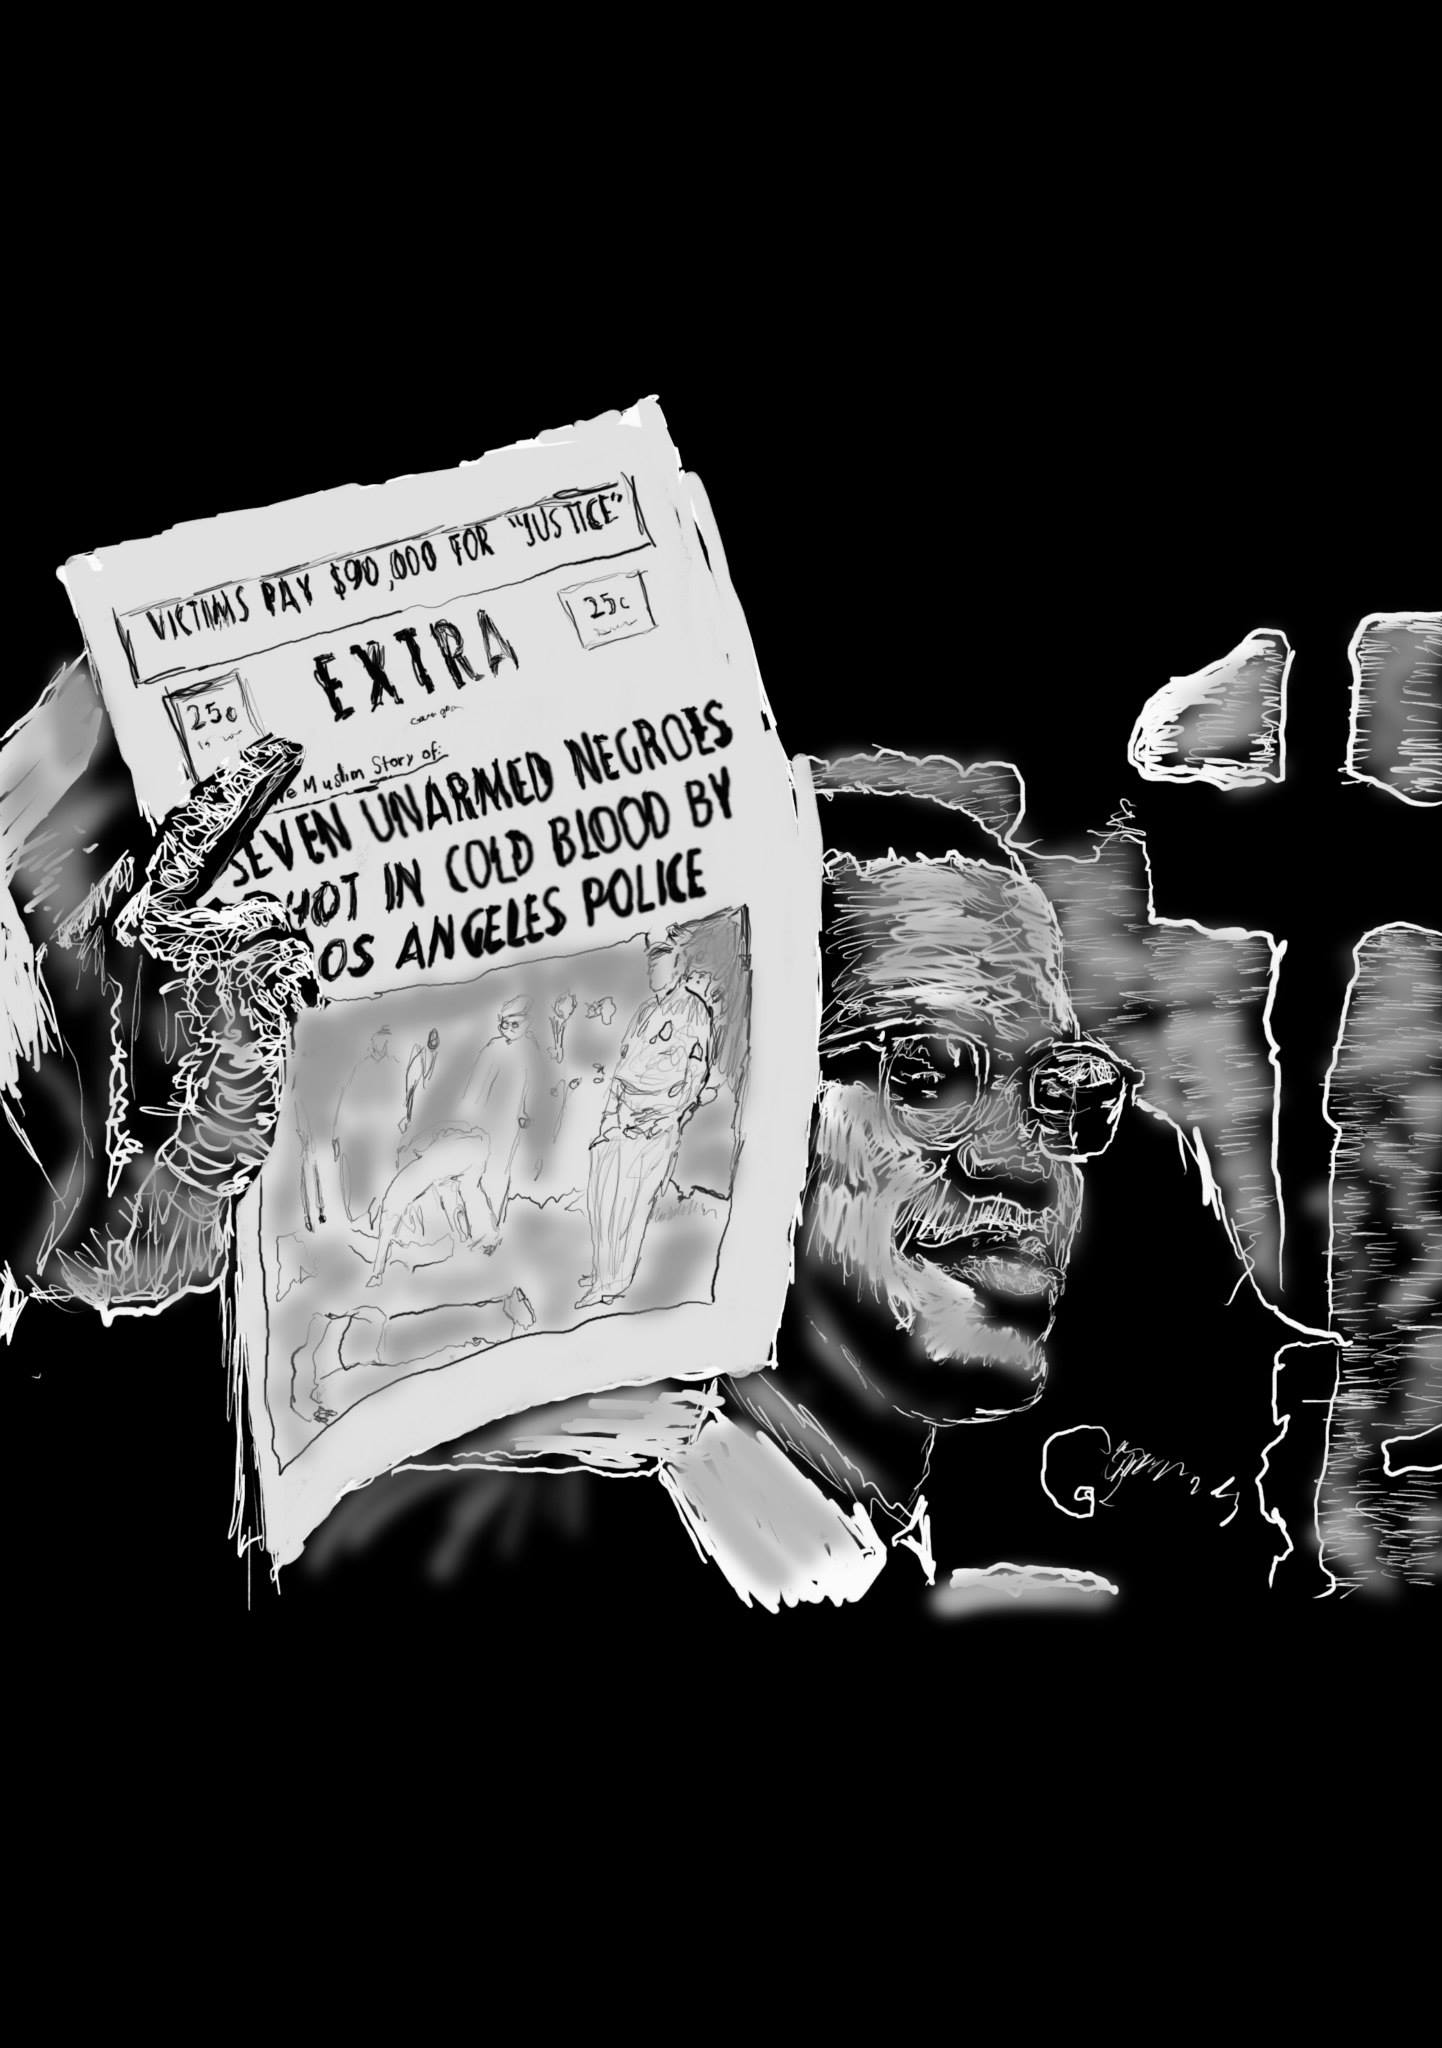 VICTIMS PAY $90,000 FOR "JUSTICE"
25c
EXTRA
25c
Muslim Story of:
SEVEN UNARMED NEGROES
HOT IN COLD BLOOD BY
OS ANGELES POLICE